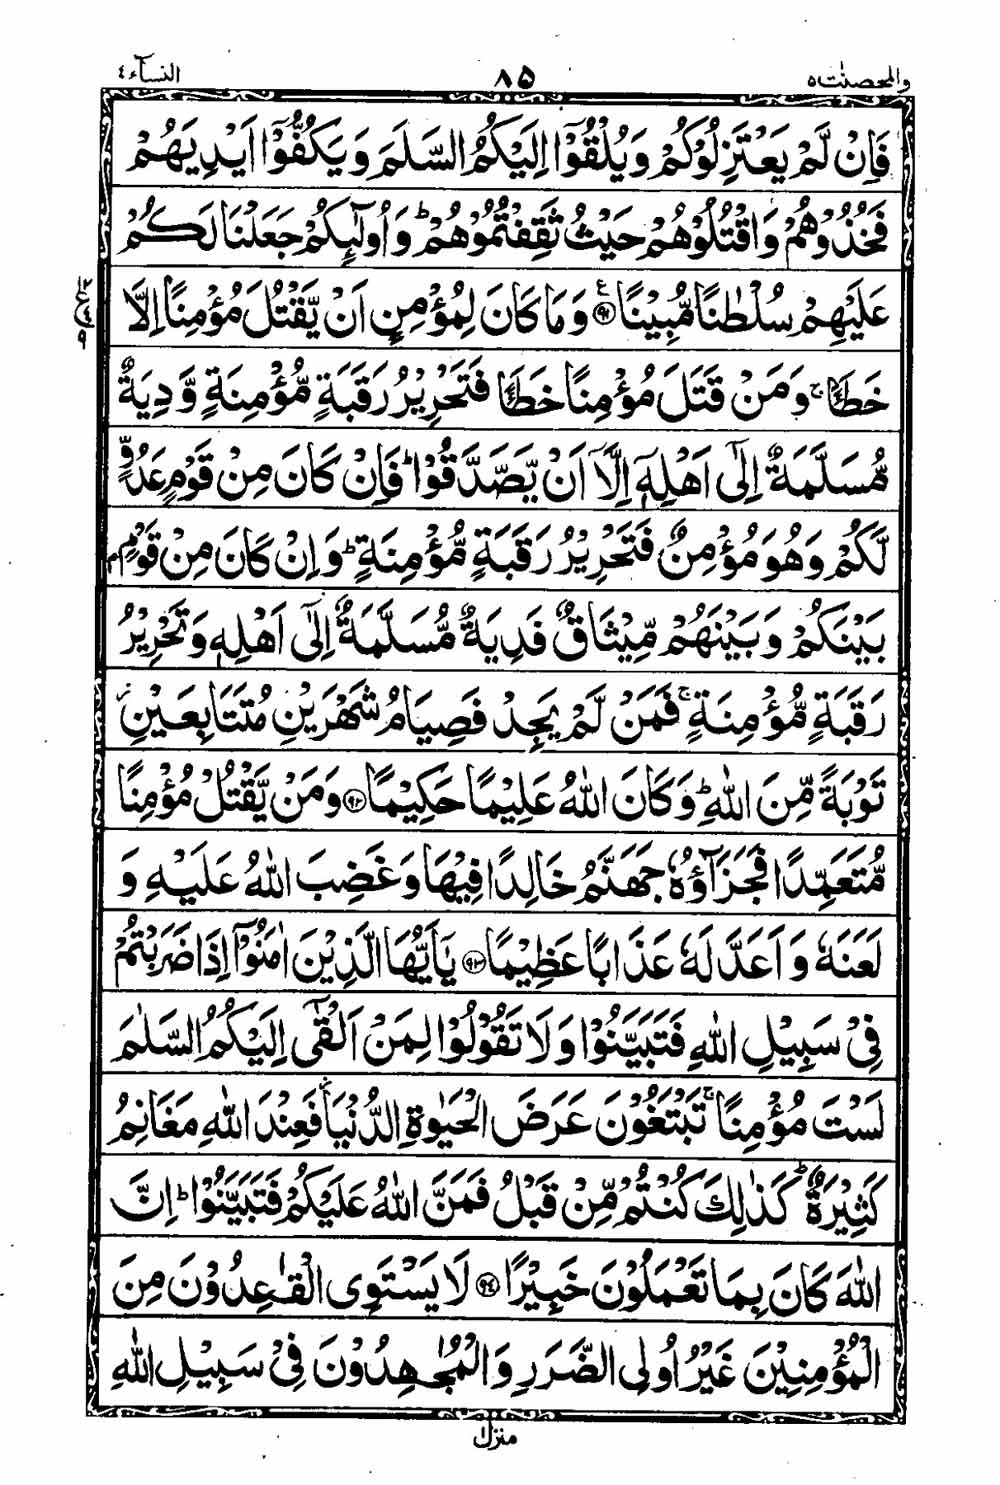 والمحصنٰت ۵
۸۵
النسآء ٤
فَاِنْ لَّمْ يَعْتَزِلُوْكُمْ وَيُلْقُوْٓا اِلَيْكُمُ السَّلَمَ وَيَكُفُّوْٓا اَيْدِيَهُمْ
فَخُذُوْهُمْ وَاقْتُلُوْهُمْ حَيْثُ ثَقِفْتُمُوْهُمْ ؕ وَاُولٰٓئِكُمْ جَعَلْنَا لَكُمْ
عَلَيْهِمْ سُلْطٰنًا مُّبِيْنًا ۝۹۱ وَمَا كَانَ لِمُؤْمِنٍ اَنْ يَّقْتُلَ مُؤْمِنًا اِلَّا
خَطَـًٔا ۚ وَمَنْ قَتَلَ مُؤْمِنًا خَطَـًٔا فَتَحْرِيْرُ رَقَبَةٍ مُّؤْمِنَةٍ وَّدِيَةٌ
مُّسَلَّمَةٌ اِلٰٓى اَهْلِهٖٓ اِلَّآ اَنْ يَّصَّدَّقُوْا ؕ فَاِنْ كَانَ مِنْ قَوْمٍ عَدُوٍّ
لَّكُمْ وَهُوَ مُؤْمِنٌ فَتَحْرِيْرُ رَقَبَةٍ مُّؤْمِنَةٍ ؕ وَاِنْ كَانَ مِنْ قَوْمٍۭ
بَيْنَكُمْ وَبَيْنَهُمْ مِّيْثَاقٌ فَدِيَةٌ مُّسَلَّمَةٌ اِلٰٓى اَهْلِهٖ وَتَحْرِيْرُ
رَقَبَةٍ مُّؤْمِنَةٍ ۚ فَمَنْ لَّمْ يَجِدْ فَصِيَامُ شَهْرَيْنِ مُتَتَابِعَيْنِ ؗ
تَوْبَةً مِّنَ اللّٰهِ ؕ وَكَانَ اللّٰهُ عَلِيْمًا حَكِيْمًا ۝۹۲ وَمَنْ يَّقْتُلْ مُؤْمِنًا
مُّتَعَمِّدًا فَجَزَآؤُهٗ جَهَنَّمُ خَالِدًا فِيْهَا وَغَضِبَ اللّٰهُ عَلَيْهِ وَ
لَعَنَهٗ وَاَعَدَّ لَهٗ عَذَابًا عَظِيْمًا ۝۹۳ يٰٓاَيُّهَا الَّذِيْنَ اٰمَنُوْٓا اِذَا ضَرَبْتُمْ
فِيْ سَبِيْلِ اللّٰهِ فَتَبَيَّنُوْا وَلَا تَقُوْلُوْا لِمَنْ اَلْقٰٓى اِلَيْكُمُ السَّلٰمَ
لَسْتَ مُؤْمِنًا ۚ تَبْتَغُوْنَ عَرَضَ الْحَيٰوةِ الدُّنْيَا ؗ فَعِنْدَ اللّٰهِ مَغَانِمُ
كَثِيْرَةٌ ؕ كَذٰلِكَ كُنْتُمْ مِّنْ قَبْلُ فَمَنَّ اللّٰهُ عَلَيْكُمْ فَتَبَيَّنُوْا ؕ اِنَّ
اللّٰهَ كَانَ بِمَا تَعْمَلُوْنَ خَبِيْرًا ۝۹۴ لَا يَسْتَوِى الْقٰعِدُوْنَ مِنَ
الْمُؤْمِنِيْنَ غَيْرُ اُولِى الضَّرَرِ وَالْمُجٰهِدُوْنَ فِيْ سَبِيْلِ اللّٰهِ
منزل ۱